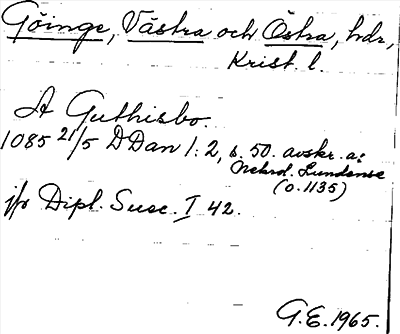 Göinge, Västra och Östra, hdr,
Krist. l.
A Guthisbo.
1085 21/5 DDan 1:2, s. 50. avskr. a:
Nekrol. Lundense
(o. 1135)
jfr Dipl. Suec. I 42.
G.E. 1965.